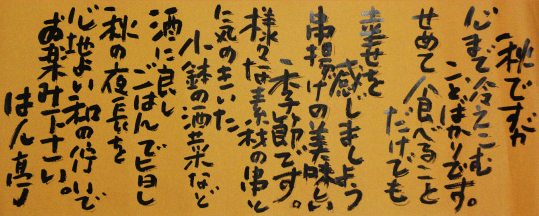 秋ですが
心まで冷えこむ
ことばかりです。
せめて食べること
だけでも
幸せを
感じましょう
串揚げの美味しい
季節です。
様々な素材の串と
気のきいた
小鉢の酒菜など
酒に良し
ごはんで旨し
秋の夜長を
心地よい和の佇いで
お楽み下さい。
はん亭